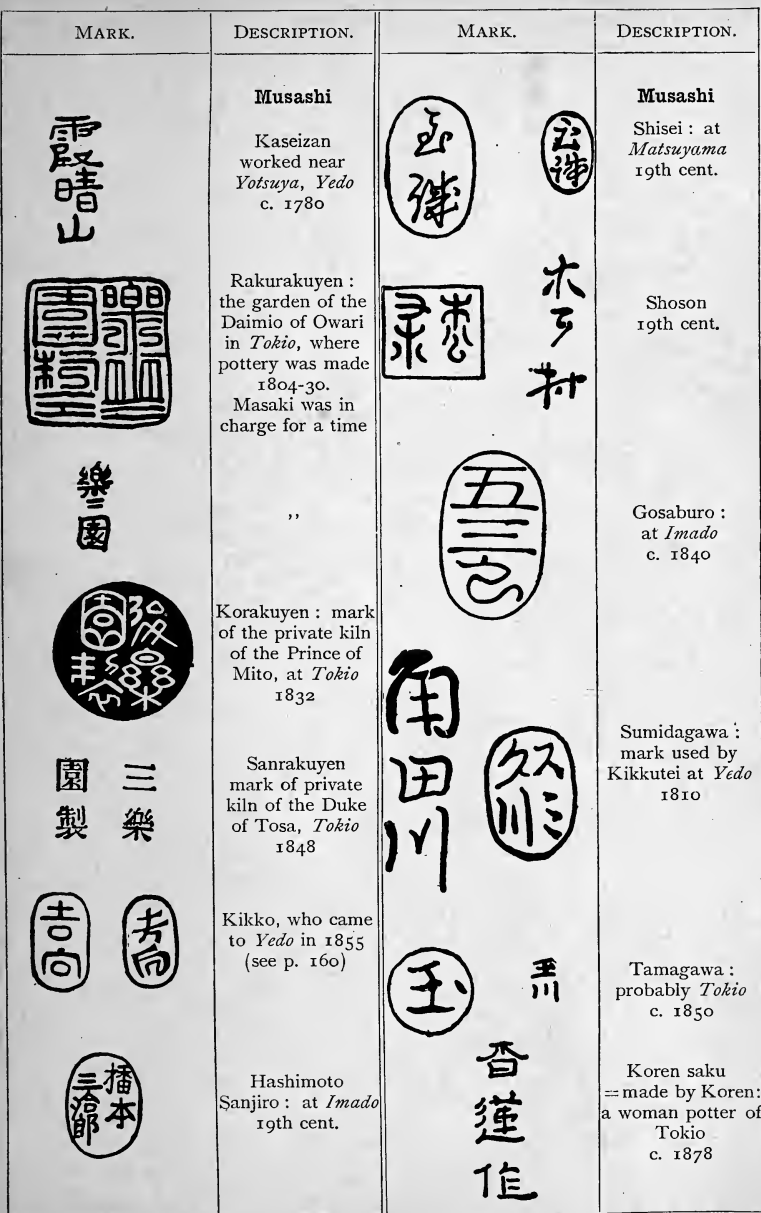 MARK.
DESCRIPTION.
MARK.
DESCRIPTION.
霞晴山
Musashi
Kaseizan
worked near
Yotsuya, Yedo
c. 1780
Rakurakuyen :
the garden of the
Daimio of Owari
in Tokio, where
pottery was made
1804-30.
Masaki was in
charge for a time
樂〻園
,,
後樂
園製
Korakuyen : mark
of the private kiln
of the Prince of
Mito, at Tokio
1832
三樂
園製
Sanrakuyen
mark of private
kiln of the Duke
of Tosa, Tokio
1848
吉向
吉向
Kikko, who came
to Yedo in 1855
(see p. 160)
本
三治郎
Hashimoto
Sanjiro : at Imado
19th cent.
Musashi
Shisei : at
Matsuyama
19th cent.
村
Shoson
19th cent.
五三
Gosaburo :
at Imado
c. 1840
角田川
Sumidagawa :
mark used by
Kikkutei at Yedo
1810
玉
玉川
Tamagawa :
probably Tokio
c. 1850
香蓮作
Koren saku
=made by Koren:
a woman potter of
Tokio
c. 1878